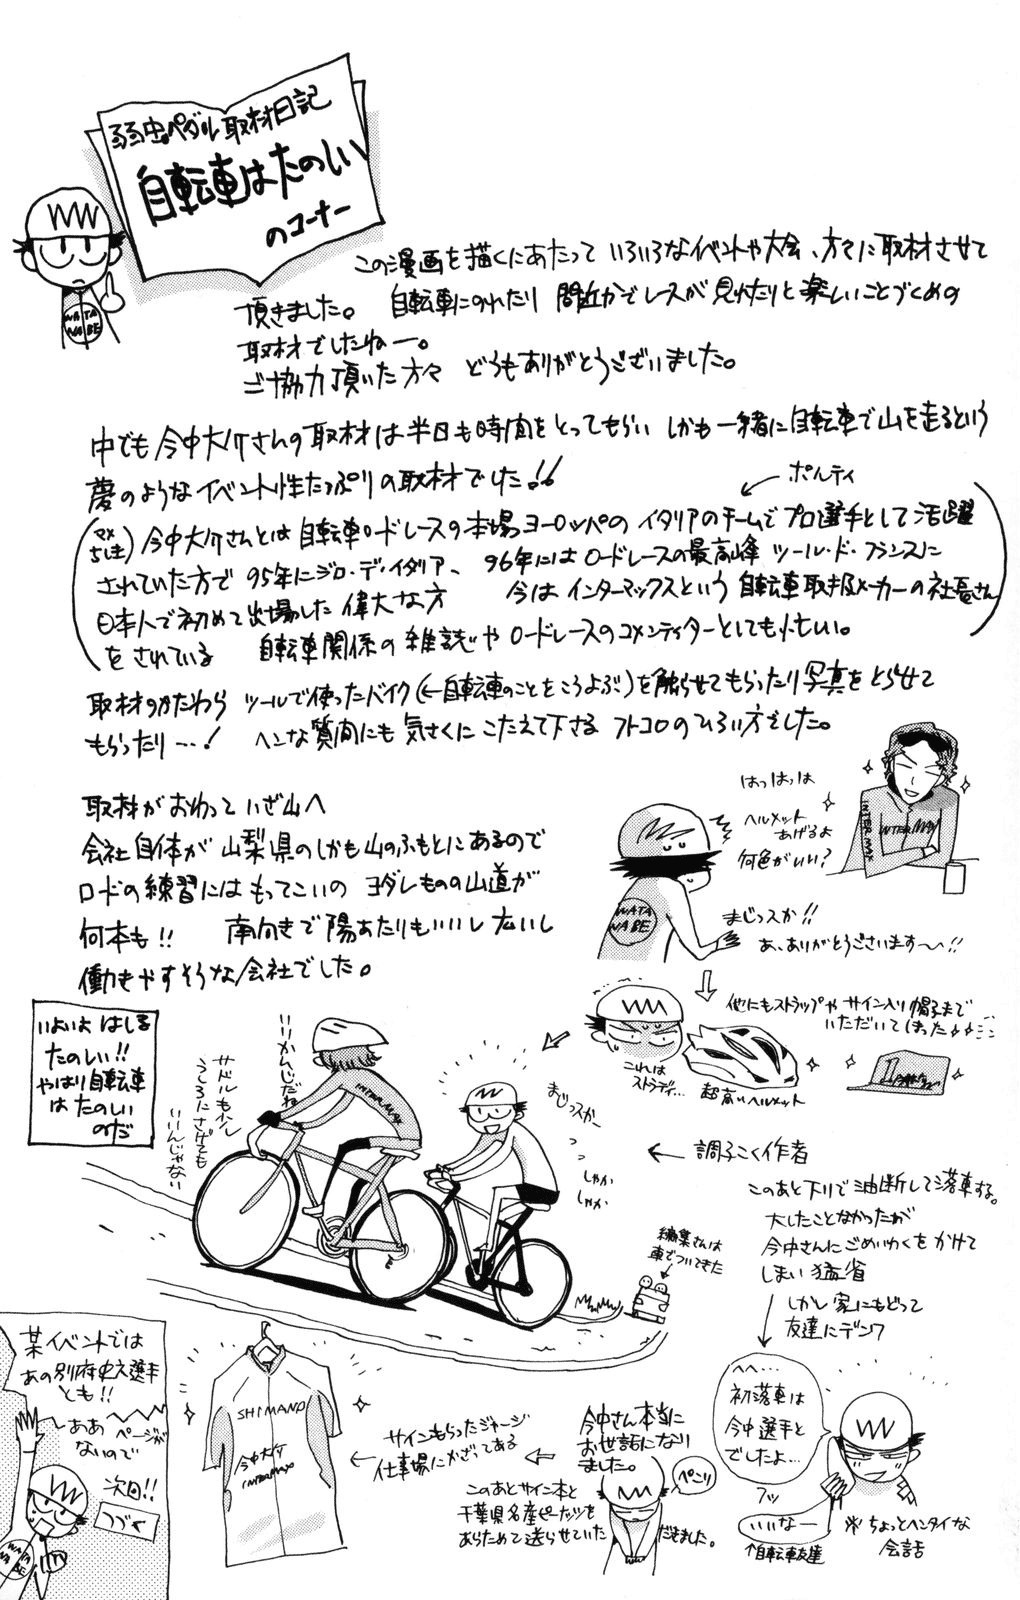 弱虫ペダル取材日記
自転車はたのしい
のコーナー
WATA
NABE
この漫画を描くにあたって いろいろなイベントや大会、方々に取材させて
頂きました。 自転車にのれたり 間近かでレースが見れたりと楽しいことづくめの
取材でしたねー。
ご協力頂いた方々 どうもありがとうございました。
中でも今中大介さんの取材は半日も時間をとってもらい しかも一緒に自転車で山を走るという
夢のようなイベント性たっぷりの取材でした!!
ポルティ
(マメちしき) 今中大介さんとは自転車ロードレースの本場ヨーロッパのイタリアのチームでプロ選手として活躍
されていた方で95年にジロ・デ・イタリア、 96年にはロードレースの最高峰 ツール・ド・フランスに
日本人で初めて出場した偉大な方 今はインターマックスという自転車取扱メーカーの社長さん
をされている 自転車関係の雑誌やロードレースのコメンテイターとしても忙しい。
取材のかたわら ツールで使ったバイク(←自転車のことをこうよぶ)を触らせてもらったり写真をとらせて
もらったり…! ヘンな質問にも気さくにこたえて下さる フトコロのひろい方でした。
取材がおわって いざ山へ
会社自体が山梨県のしかも山のふもとにあるので
ロードの練習にはもってこいの ヨダレものの山道が
何本も!! 南向きで陽あたりもいいし広いし
働きやすそうな会社でした。
はっはっは
ヘルメット
あげるよ
何色がいい?
INTERMAX
INTERMAX
WATA
NABE
まじっスか!!
あ、ありがとうございます〜!!
他にもストラップやサイン入り帽子まで
いただいてしまった
これは
ストラディ…
超高いヘルメット
いよいよはしる
たのしい!!
やはり自転車
はたのしい
のだ
いいかんじだね
サドルもう少し
うしろにさげても
いいんじゃない
INTERMAX
まじっスかー
しゃか
しゃか
← 調子こく作者
編集さんは
車でついてきた
このあと下りで油断して落車する。
大したことなかったが
今中さんにごめいわくをかけて
しまい猛省
しかし家にもどって
友達にデンワ
へへ…
初落車は
今中選手と
でしたよ…
フッ
いいなー
↑自転車友達
※ちょっとヘンタイな
会話
今中さん本当に
お世話になり
ました。
ぺこり
このあとサイン本と
千葉県名産ピーナッツを
あらためて送らせていただきました。
サインもらったジャージ
仕事場にかざってある
SHIMANO
今中大介
INTERMAX
某イベントでは
あの別府史之選手
とも!!
ああ ページが
ないので
次回!!
つづく
WATA
NABE